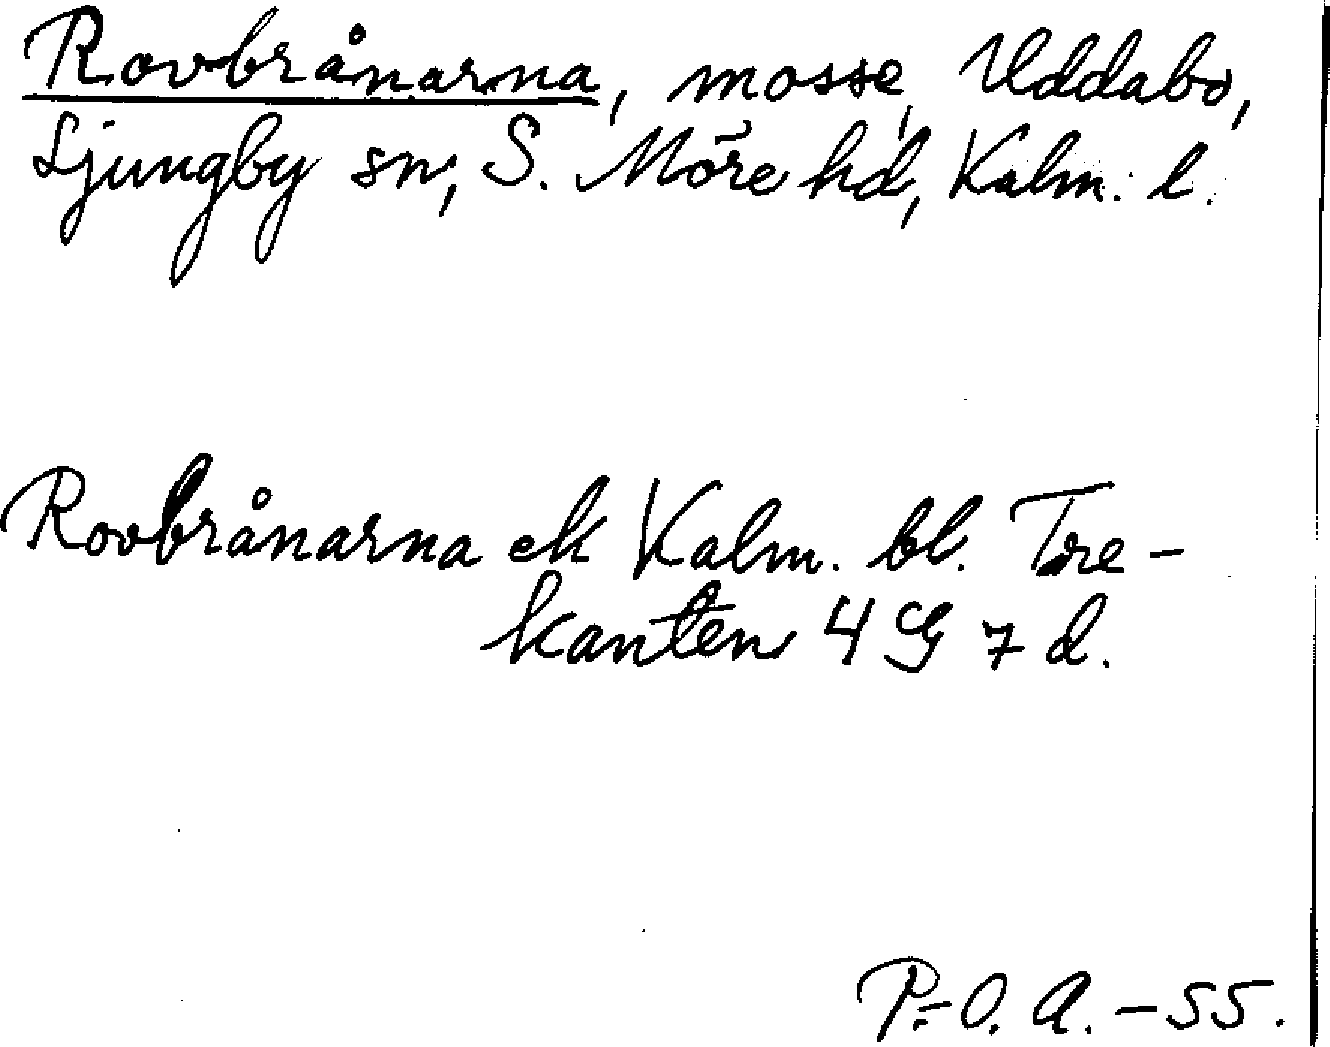 Rovbrånarna, mosse, Uddabo,
Ljungby sn, S. Möre hd, Kalm. l.
Rovbrånarna ek Kalm. bl. Tre-
kanten 4 G 7 d.
P.-O. A. - 55.